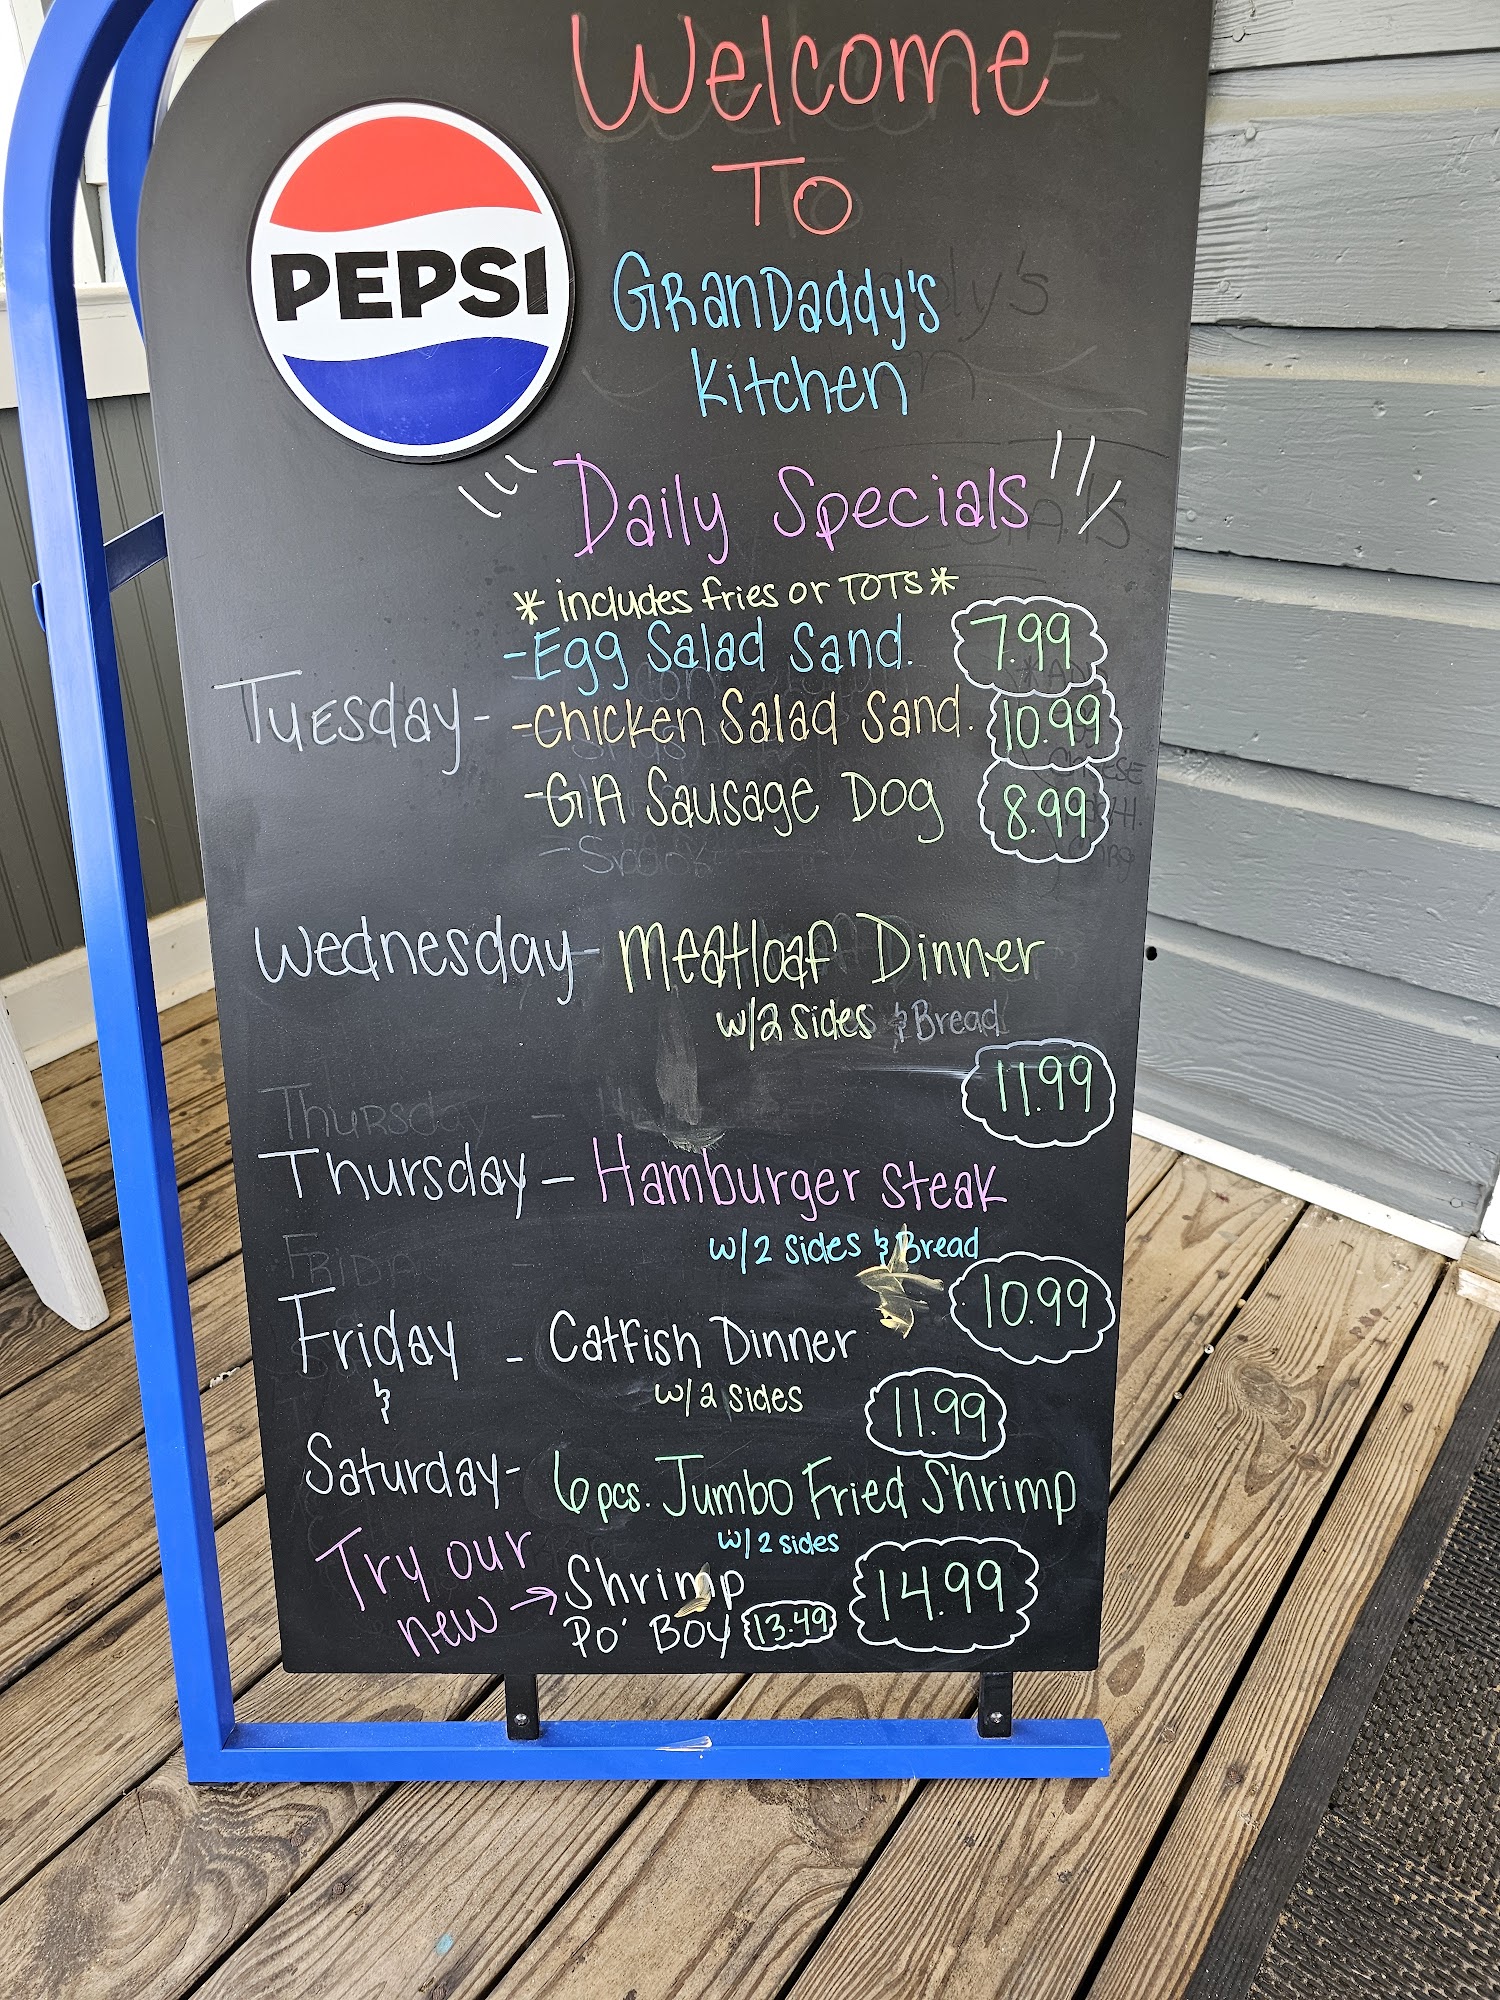 Welcome
To
PEPSI
GRanDaddy's
Kitchen
Daily Specials
* includes fries or TOTS *
-Egg Salad Sand. 7.99
Tuesday- -Chicken Salad Sand. 10.99
-GA Sausage Dog 8.99
Wednesday- Meatloaf Dinner
w/2 sides & Bread
11.99
Thursday - Hamburger steak
w/2 sides & Bread
10.99
Friday - Catfish Dinner
& w/2 sides 11.99
Saturday- 6pcs. Jumbo Fried Shrimp
w/2 sides
14.99
Try our
new → Shrimp
Po' Boy 13.49